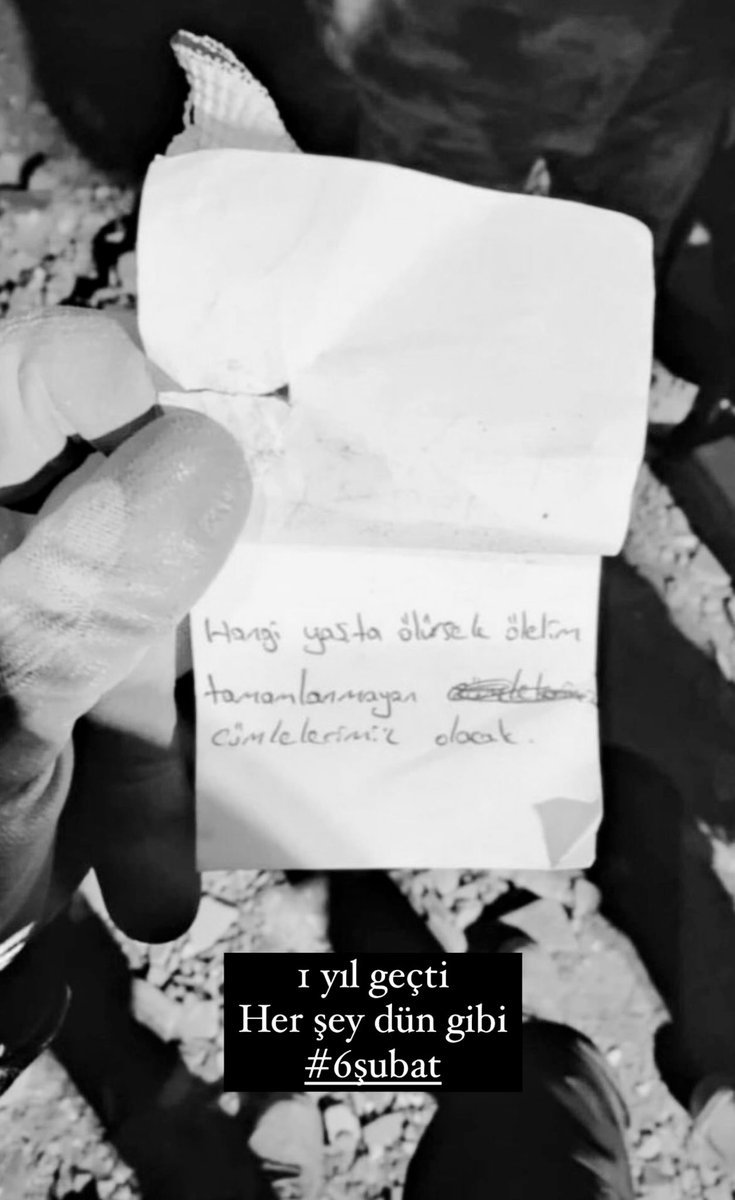 Hangi yaşta ölürsek ölelim
tamamlanmayan
cümlelerimiz olacak.
1 yıl geçti
Her şey dün gibi
#6şubat